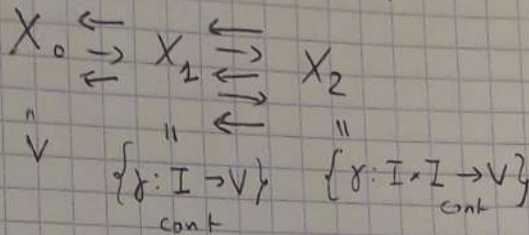 X₀ ⇇ → X₁ ← → ← → ← X₂
" " "
V {γ: I → V} {γ: I × I → V}
cont cont